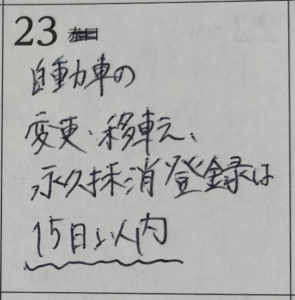 23
自動車の
変更、移転、
永久抹消登録は
15日以内